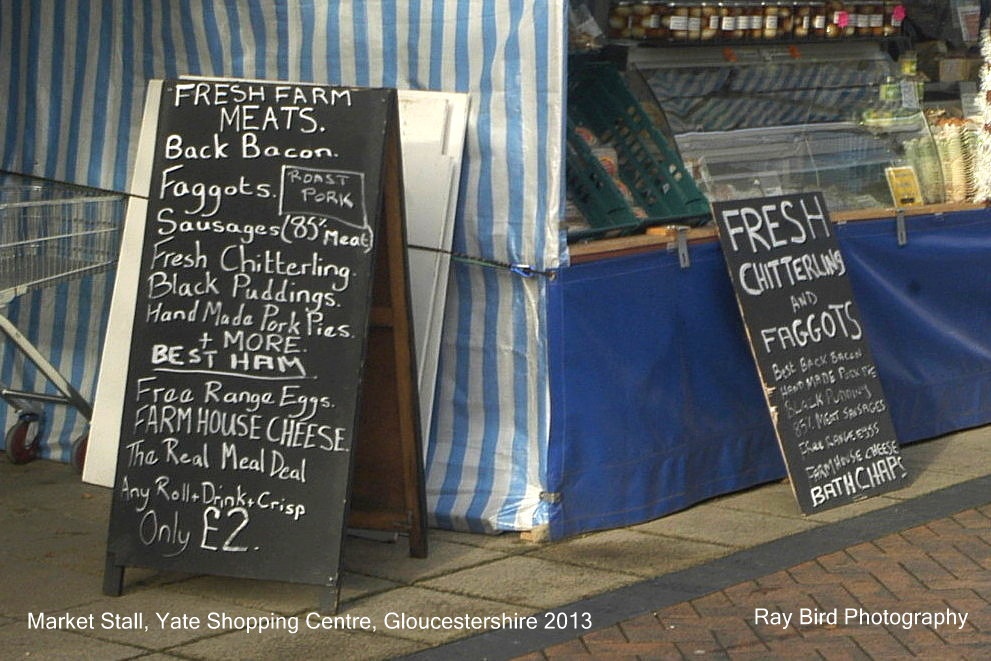 FRESH FARM
MEATS.
Back Bacon.
Faggots.
ROAST
PORK
Sausages (85% Meat)
Fresh Chitterling.
Black Puddings.
Hand Made Pork Pies.
+ MORE.
BEST HAM
Free Range Eggs.
FARM HOUSE CHEESE.
The Real Meal Deal
Any Roll + Drink + Crisp
Only £2.
FRESH
CHITTERLING
AND
FAGGOTS
BEST BACK BACON
HAND MADE PORK PIE
BLACK PUDDING
85% MEAT SAUSAGES
FREE RANGE EGGS
FARM HOUSE CHEESE
BATH CHAPS
Market Stall, Yate Shopping Centre, Gloucestershire 2013
Ray Bird Photography